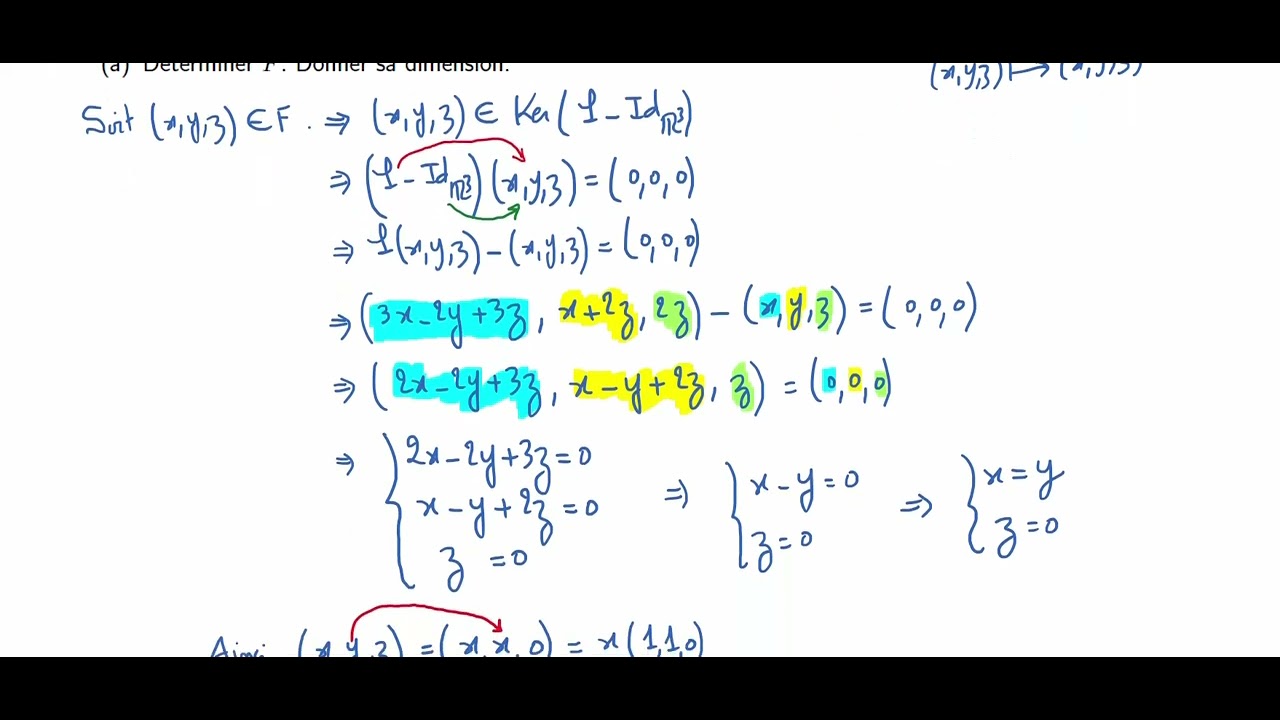 (a) Déterminer F. Donner sa dimension.
(x,y,z) ⟼ (x,y,z)
Soit (x,y,z) ∈ F. ⇒ (x,y,z) ∈ Ker(f - Id_ℝ³)
⇒ (f - Id_ℝ³)(x,y,z) = (0,0,0)
⇒ f(x,y,z) - (x,y,z) = (0,0,0)
⇒ (3x-2y+3z, x+2z, 2z) - (x,y,z) = (0,0,0)
⇒ (2x-2y+3z, x-y+2z, z) = (0,0,0)
⇒ { 2x-2y+3z=0
x-y+2z=0
z=0
⇒ { x-y=0
z=0
⇒ { x=y
z=0
Ainsi (x,y,z) = (x,x,0) = x(1,1,0)